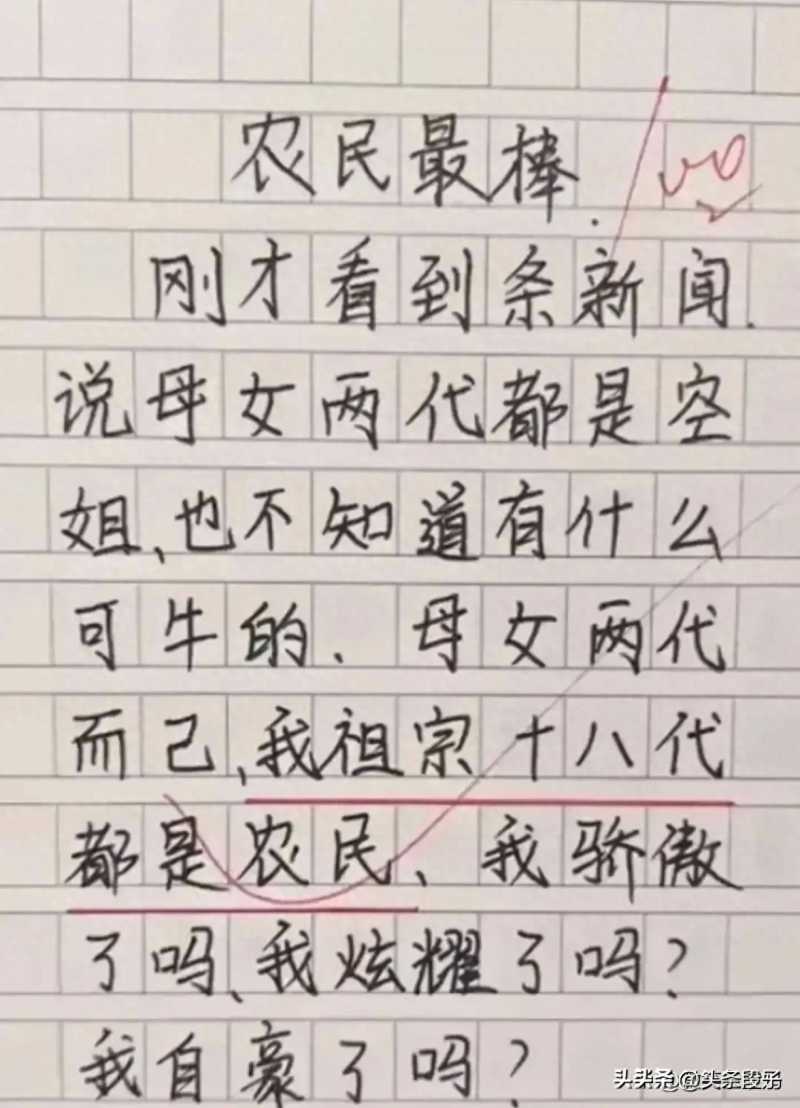 农民最棒.
100
刚才看到条新闻.
说母女两代都是空
姐、也不知道有什么
可牛的. 母女两代
而己、我祖宗十八代
都是农民、我骄傲
了吗、我炫耀了吗?
我自豪了吗?
头条@头条段子